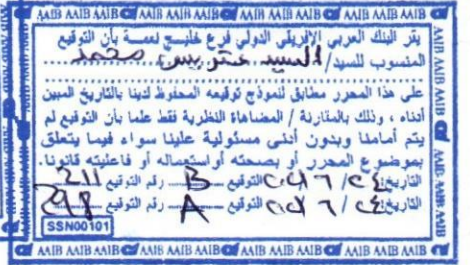 AAIB AAIB AAIB AAIB AAIB AAIB AAIB
يقر البنك العربي الإفريقي الدولي فرع خليج نعمة بأن التوقيع
المنسوب للسيد/ السيد عتريس محمد
على هذا المحرر مطابق لنموذج توقيعه المحفوظ لدينا بالتاريخ المبين
أدناه ، وذلك بالمقارنة / المضاهاة النظرية فقط علما بأن التوقيع لم
يتم أمامنا وبدون أدنى مسئولية علينا سواء فيما يتعلق
بموضوع المحرر أو بصحته أو استعماله أو فاعليته قانونا.
التاريخ ٢٤/٦ التوقيع B رقم التوقيع 211
التاريخ ٢٤/٦ التوقيع A رقم التوقيع 298
SSN00101
AAIB AAIB AAIB AAIB AAIB AAIB AAIB